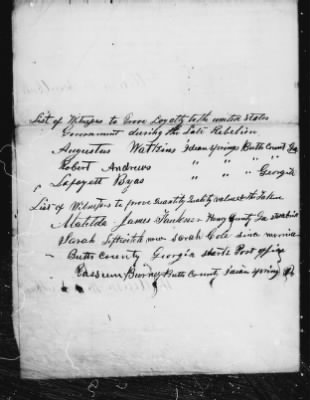 List of Witnesses to Prove Loyalty to the united states
Government during the Late Rebelion
Augustus Watkins Indian Springs Butts County Ga
Robert Andrews " " " "
Lafayett Byas " " Georgia
List of Witnesses to prove Quantity Quality values & taken
Matilda James Faulkner Henry County Ga
Sarah now Sarah Cole since
Butts County Georgia Post office
Burney Butts County Indian Spring